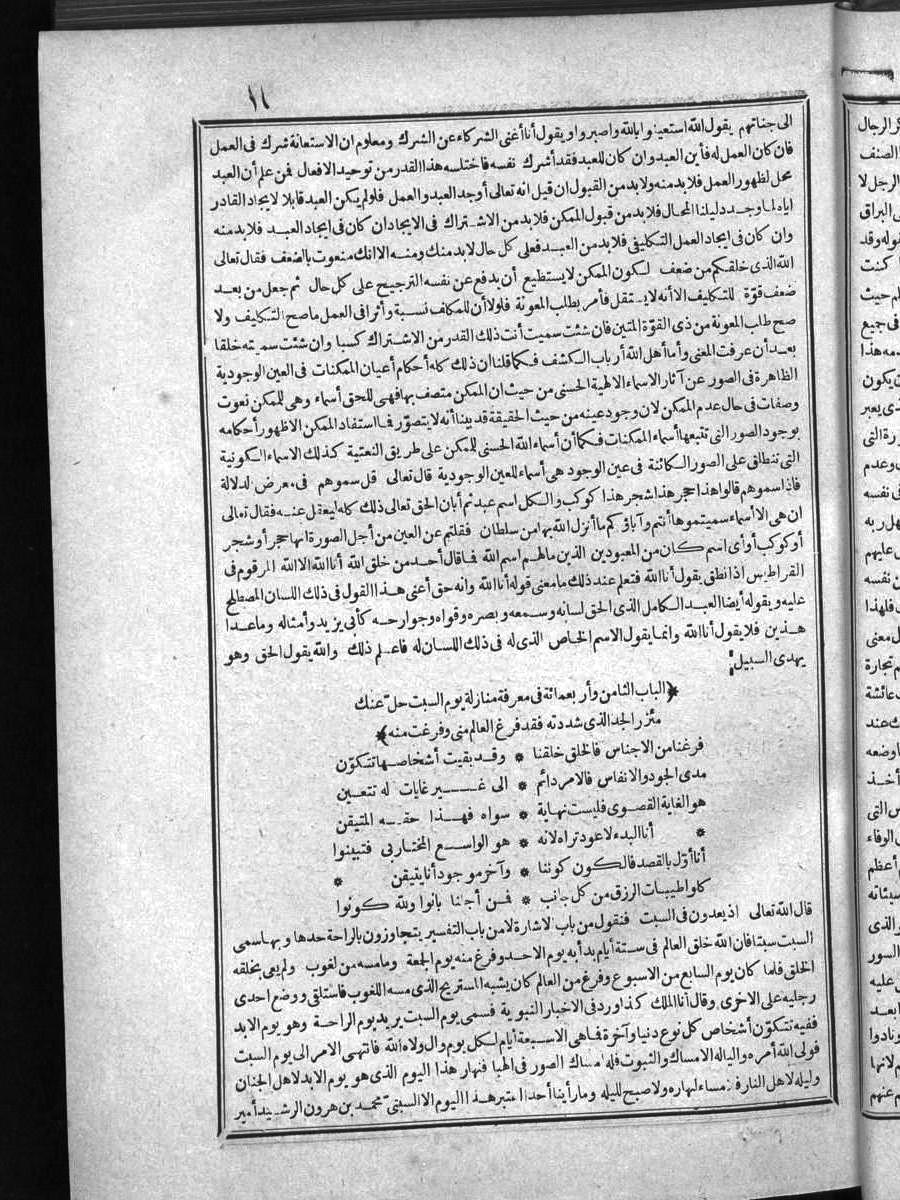 ١١
الى جنانهم يقول الله استعينوا بالله واصبروا ويقول أنا أغنى الشركاء عن الشرك ومعلوم ان الاستعانة شرك فى العمل
فان كان العمل له فأين العبد وان كان للعبد فقد أشرك نفسه فاختلسه هذا القدر من توحيد الافعال فمن علم أن العبد
محل لظهور العمل فلا بد منه ولا بد من القبول ان قيل انه تعالى أوجد العبد والعمل فلو لم يكن العبد قابلا لايجاد القادر
اياه لما وجد دليلنا المحال فلا بد من قبول الممكن فلا بد من الاشتراك فى الايجاد ان كان فى ايجاد العبد فلا بد منه
وان كان فى ايجاد العمل التكليفى فلا بد من العبد فعلى كل حال لا بد منك ومنه الا انك منعوت بالضعف فقال تعالى
الله الذى خلقكم من ضعف لكون الممكن لا يستطيع أن يدفع عن نفسه الترجيح على كل حال ثم جعل من بعد
ضعف قوّة للتكليف الا أنه لا يستقل فأمر بطلب المعونة فلولا أن للمكلف نسبة وأثرا فى العمل ما صح التكليف ولا
صح طلب المعونة من ذى القوّة المتين فان شئت سميت أنت ذلك القدر من الاشتراك كسبا وان شئت سميته خلقا
بعد أن عرفت المعنى وأما أهل الله أرباب الكشف فكما قلنا ان ذلك كله أحكام أعيان الممكنات فى العين الوجودية
الظاهرة فى الصور عن آثار الاسماء الالهية الحسنى من حيث ان الممكن متصف بها فهى للحق أسماء وهى للممكن نعوت
وصفات فى حال عدم الممكن لان وجود عينه من حيث الحقيقة قد بينا أنه لا يتصوّر فما استفاد الممكن الا ظهور أحكامه
بوجود الصور التى تتبعها أسماء الممكنات فكما أن أسماء الله الحسنى للممكن على طريق النعتية كذلك الاسماء الكونية
التى تنطلق على الصور الكائنة فى عين الوجود هى أسماء للعين الوجودية قال تعالى قل سموهم فى معرض الدلالة
فاذا سموهم قالوا هذا حجر هذا شجر هذا كوكب والكل اسم عبد ثم أبان الحق تعالى ذلك كله ليعقل عنه فقال تعالى
ان هى الا أسماء سميتموها أنتم وآباؤكم ما أنزل الله بها من سلطان فقلتم عن العين من أجل الصورة انها حجر أو شجر
أو كوكب أو أى اسم كان من المعبودين الذين ما لهم اسم الله فما قال أحد من خلق الله أنا الله الا الله المرقوم فى
القراطيس اذا نطق يقول أنا الله فتعلم عند ذلك ما معنى قوله أنا الله وانه حق أعنى هذا القول فى ذلك اللسان المصطلح
عليه ويقوله أيضا العبد الكامل الذى الحق لسانه وسمعه وبصره وقواه وجوارحه كأبى يزيد وأمثاله وما عدا
هذين فلا يقول أنا الله وانما يقول الاسم الخاص الذى له فى ذلك اللسان له فاعلم ذلك والله يقول الحق وهو
يهدى السبيل
﴿الباب الثامن وأربعمائة فى معرفة منازلة يوم السبت حلّ عنك
مئزر الجد الذى شددته فقد فرغ العالم منى وفرغت منه﴾
فرغنا من الاجناس فالخلق خلقنا * وقد بقيت أشخاصها تتكوّن
مدى الجود والانفاس فالامر دائم * الى غير غايات له تتعين
هو الغاية القصوى فليست نهاية * سواه فهذا حقه المتيقن
* أنا البدء لا عود تراه لانه * هو الواسع المختار بى فتبينوا
أنا أوّل بالقصد فالكون كوننا * وآخر موجود أنا يتيقن *
كلوا طيبات الرزق من كل جانب * فمن أجلنا بانوا ولله كونوا
قال الله تعالى اذ يعدون فى السبت فنقول من باب الاشارة لا من باب التفسير يتجاوزون بالراحة حدها وبها سمى
السبت سبتا فان الله خلق العالم فى ستة أيام بدأ به يوم الاحد وفرغ منه يوم الجمعة وما مسه من لغوب ولم يعى بخلقه
الخلق فلما كان يوم السابع من الاسبوع وفرغ من العالم كان يشبه المستريح الذى مسه اللغوب فاستلقى ووضع احدى
رجليه على الاخرى وقال أنا الملك كذا ورد فى الاخبار النبوية فسمى يوم السبت يريد يوم الراحة وهو يوم الابد
ففيه تتكوّن أشخاص كل نوع دنيا وآخرة فما هى الا سبعة أيام لكل يوم وال ولاه الله فانتهى الامر الى يوم السبت
فولى الله أمره واليا له الامساك والثبوت فله امساك الصور فى الهبا فنهار هذا اليوم الذى هو يوم الابد لاهل الجنان
وليله لاهل النار فلا مساء لنهاره ولا صبح لليله وما رأينا أحدا اعتبر هذا اليوم الا السبتى محمد بن هرون الرشيد أمير